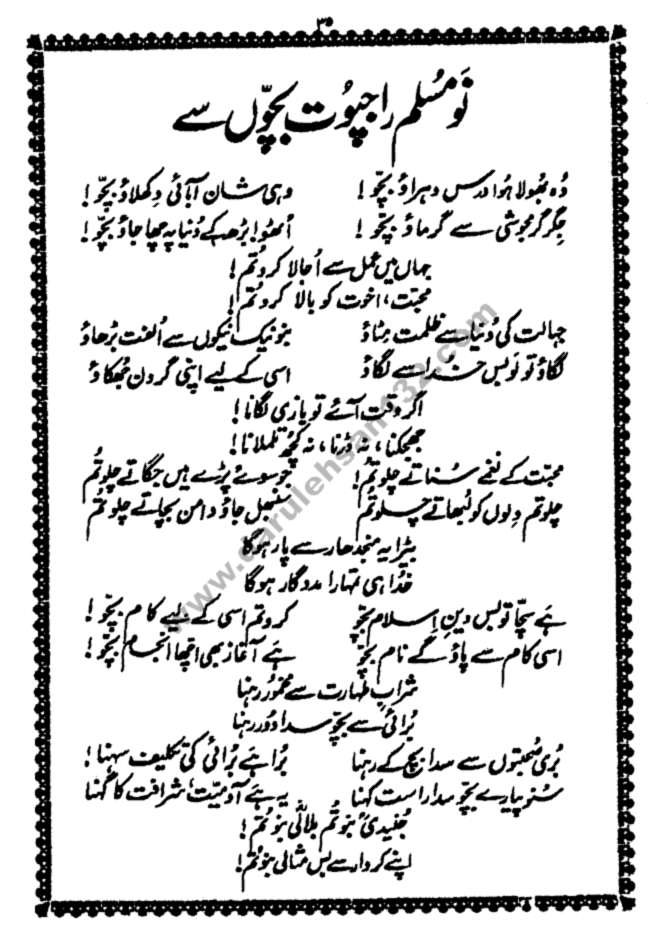 ۳۰
نَو مُسلم راجپُوت بچّوں سے
وُہ بھُولا ہُوا درس دہراؤ بچّو! وہی شان آبائی دِکھلاؤ بچّو!
جِگر گرمجوشی سے گرماؤ بچّو! اُٹھو! بڑھ کے دُنیا پہ چھا جاؤ بچّو!
جہاں میں عمل سے اُجالا کرو تُم!
محبّت، اخوت کو بالا کرو تُم!
جہالت کی دُنیا سے ظلمت مِٹاؤ بنو نیک نیکوں سے اُلفت بڑھاؤ
لگاؤ تو لَو بس خُدا سے لگاؤ اسی کے لیے اپنی گردن جُھکاؤ
اگر وقت آئے تو بازی لگانا!
جھجکنا، نہ ڈرنا، نہ کچھ تلملانا!
محبّت کے نغمے سُناتے چلو تُم! جو سوئے پڑے ہیں جگاتے چلو تُم
چلو تم دِلوں کو لُبھاتے چلو تُم سنبھل جاؤ دامن بچاتے چلو تُم
بیڑا یہ منجدھار سے پار ہوگا
خُدا ہی تمہارا مددگار ہوگا
ہے سچّا تو بس دینِ اِسلام بچّو کرو تم اسی کے لیے کام بچّو!
اسی کام سے پاؤ گے نام بچّو ہے آغاز بھی اچھا انجام بچّو!
شرابِ طہارت سے مخمُور رہنا
بُرائی سے بچّو سدا دُور رہنا
بُری صُحبتوں سے سدا بچ کے رہنا بُرا ہے بُرائی کی تکلیف سہنا!
سُنو پیارے بچّو سدا راست کہنا یہ ہے آدمیّت، شرافت کا گہنا
جُنیدیؒ بنو تُم بلالیؓ بنو تُم!
اپنے کردار سے بس مثالی بنو تُم!
www.darulehsan132.com